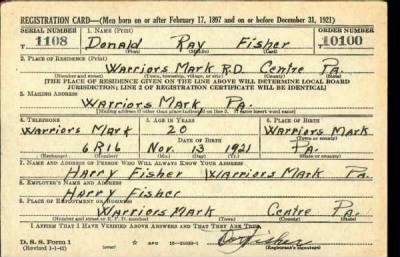 REGISTRATION CARD—(Men born on or after February 17, 1897 and on or before December 31, 1921)
SERIAL NUMBER 1. NAME (Print) ORDER NUMBER
T 1108 Donald Ray Fisher 10100
(First) (Middle) (Last)
2. PLACE OF RESIDENCE (Print)
Warriors Mark R.D. Centre Pa.
(Number and street) (Town, township, village, or city) (County) (State)
[THE PLACE OF RESIDENCE GIVEN ON THE LINE ABOVE WILL DETERMINE LOCAL BOARD
JURISDICTION; LINE 2 OF REGISTRATION CERTIFICATE WILL BE IDENTICAL]
3. MAILING ADDRESS
Warriors Mark Pa.
[Mailing address if other than place indicated on line 2. If same insert word same]
4. TELEPHONE 5. AGE IN YEARS 6. PLACE OF BIRTH
Warriors Mark 20 Warriors Mark
DATE OF BIRTH (Town or county)
6R16 Nov. 13 1921 Pa.
(Exchange) (Number) (Mo.) (Day) (Yr.) (State or country)
7. NAME AND ADDRESS OF PERSON WHO WILL ALWAYS KNOW YOUR ADDRESS
Harry Fisher Warriors Mark Pa.
8. EMPLOYER'S NAME AND ADDRESS
Harry Fisher
9. PLACE OF EMPLOYMENT OR BUSINESS
Warriors Mark Centre Pa.
(Number and street or R. F. D. number) (Town) (County) (State)
I AFFIRM THAT I HAVE VERIFIED ABOVE ANSWERS AND THAT THEY ARE TRUE.
D. S. S. Form 1
(Revised 1-1-42) (over) GPO Fisher
(Registrant's signature)